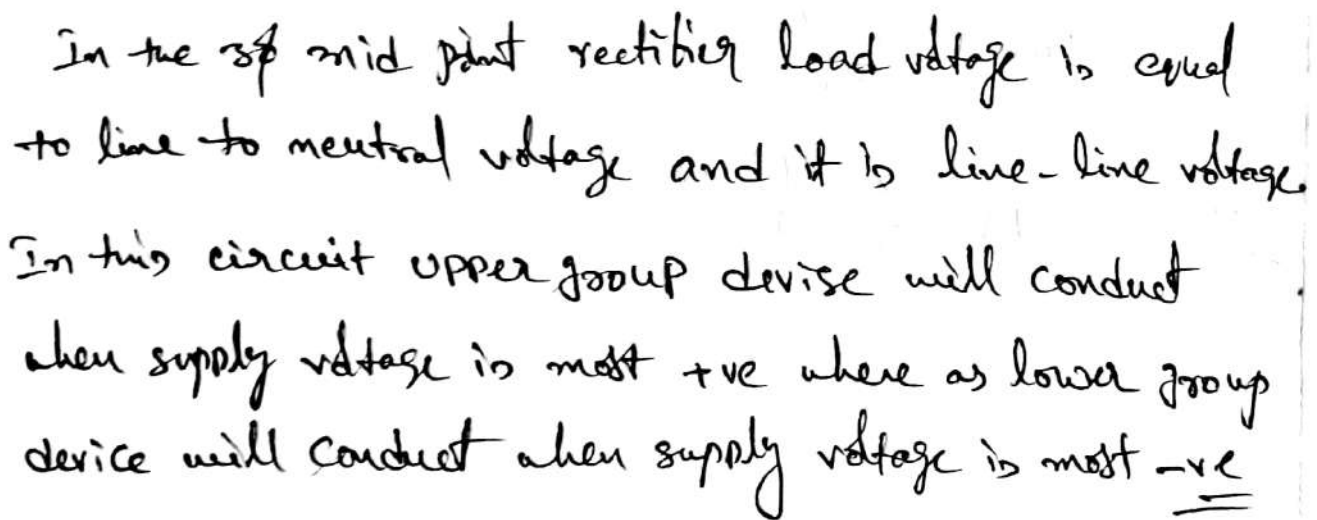 In the 3ϕ mid point rectifier load voltage is equal
to line to neutral voltage and it is line-line voltage.
In this circuit upper group devise will conduct
when supply voltage is most +ve where as lower group
device will conduct when supply voltage is most -ve